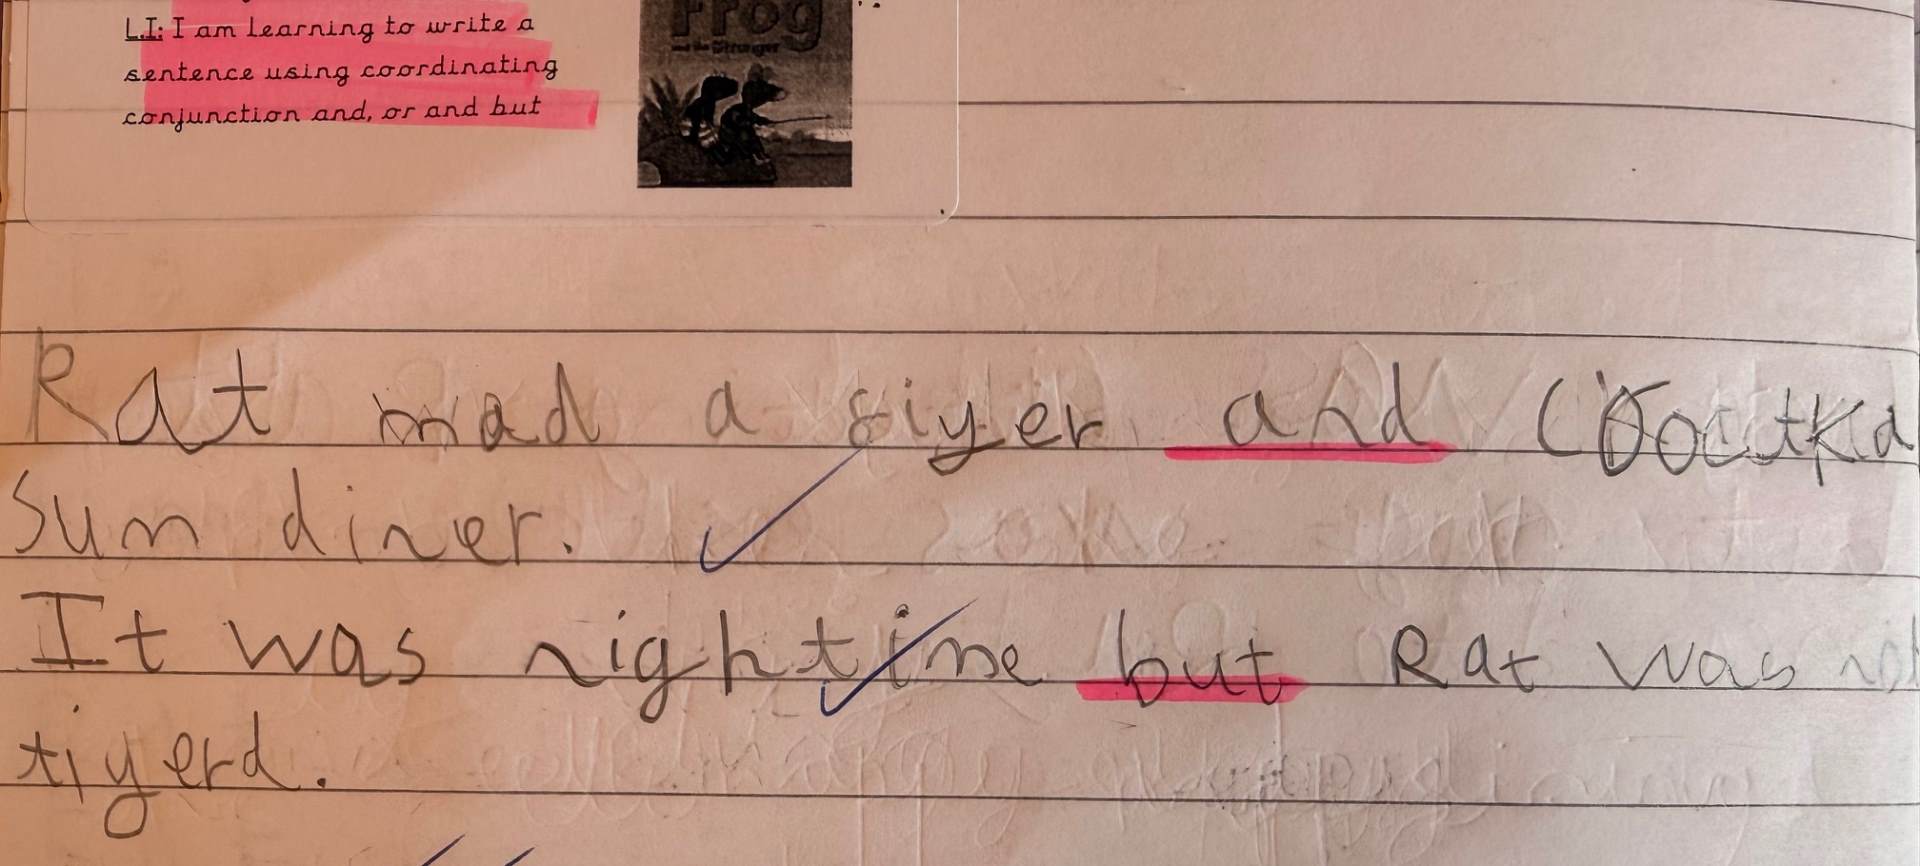 L.I: I am learning to write a
sentence using coordinating
conjunction and, or and but
Frog
and the Stranger
Rat mad a fiyer and
sum diner.
It was nightime but Rat was not
tiyerd.